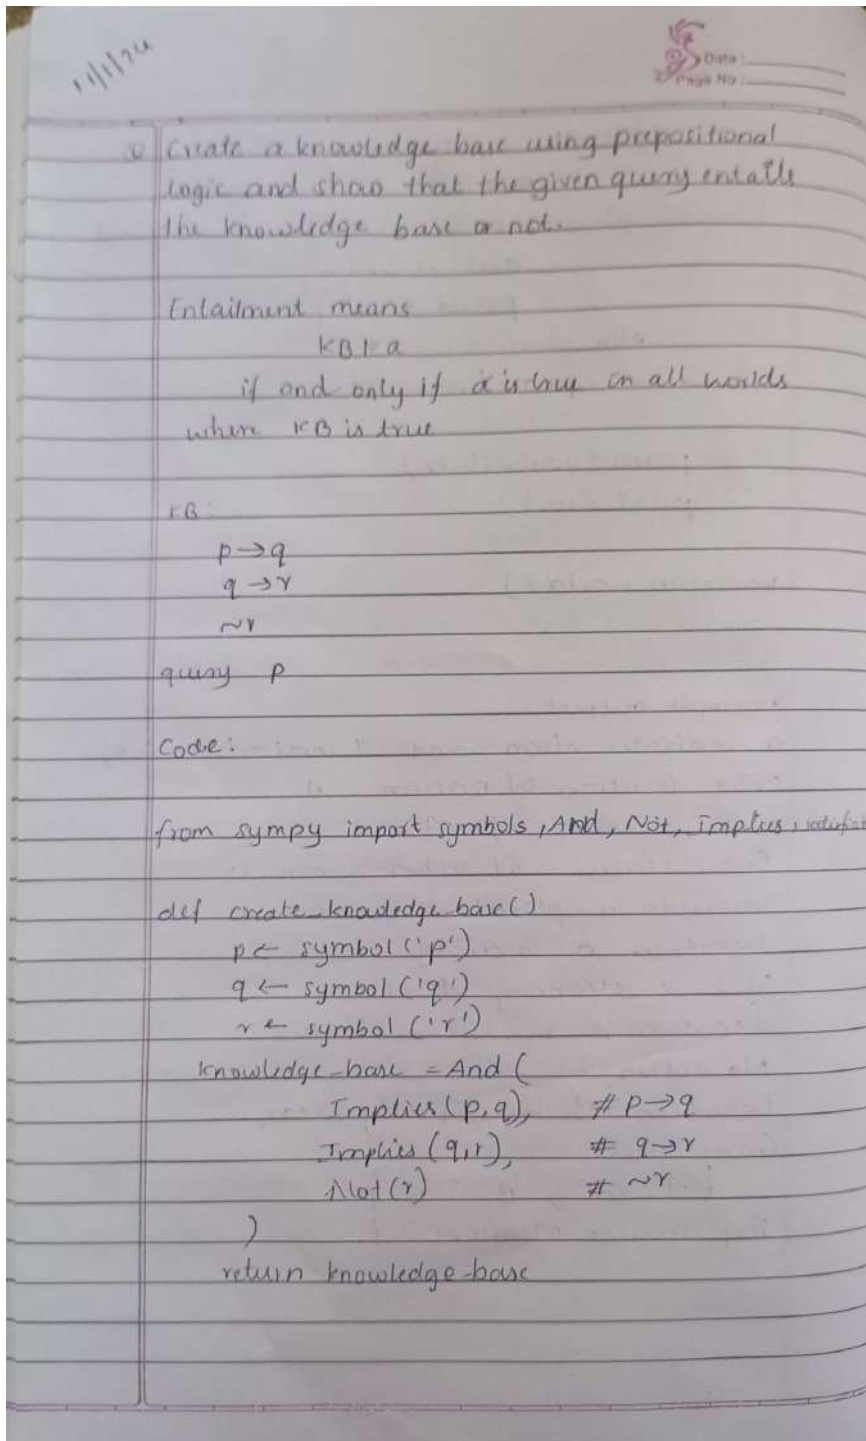 11/1/24
Data:
Page No:
Create a knowledge base using prepositional
logic and show that the given query entails
the knowledge base or not.
Entailment means
KB ⊦ a
if and only if α is true in all worlds
where KB is true
KB:
p → q
q → r
~r
query p
Code:
from sympy import symbols, And, Not, Implies,
def create_knowledge_base()
p ← symbol('p')
q ← symbol('q')
r ← symbol('r')
knowledge-base = And(
Implies(p,q), # p → q
Implies(q,r), # q → r
Not(r) # ~r
)
return knowledge-base